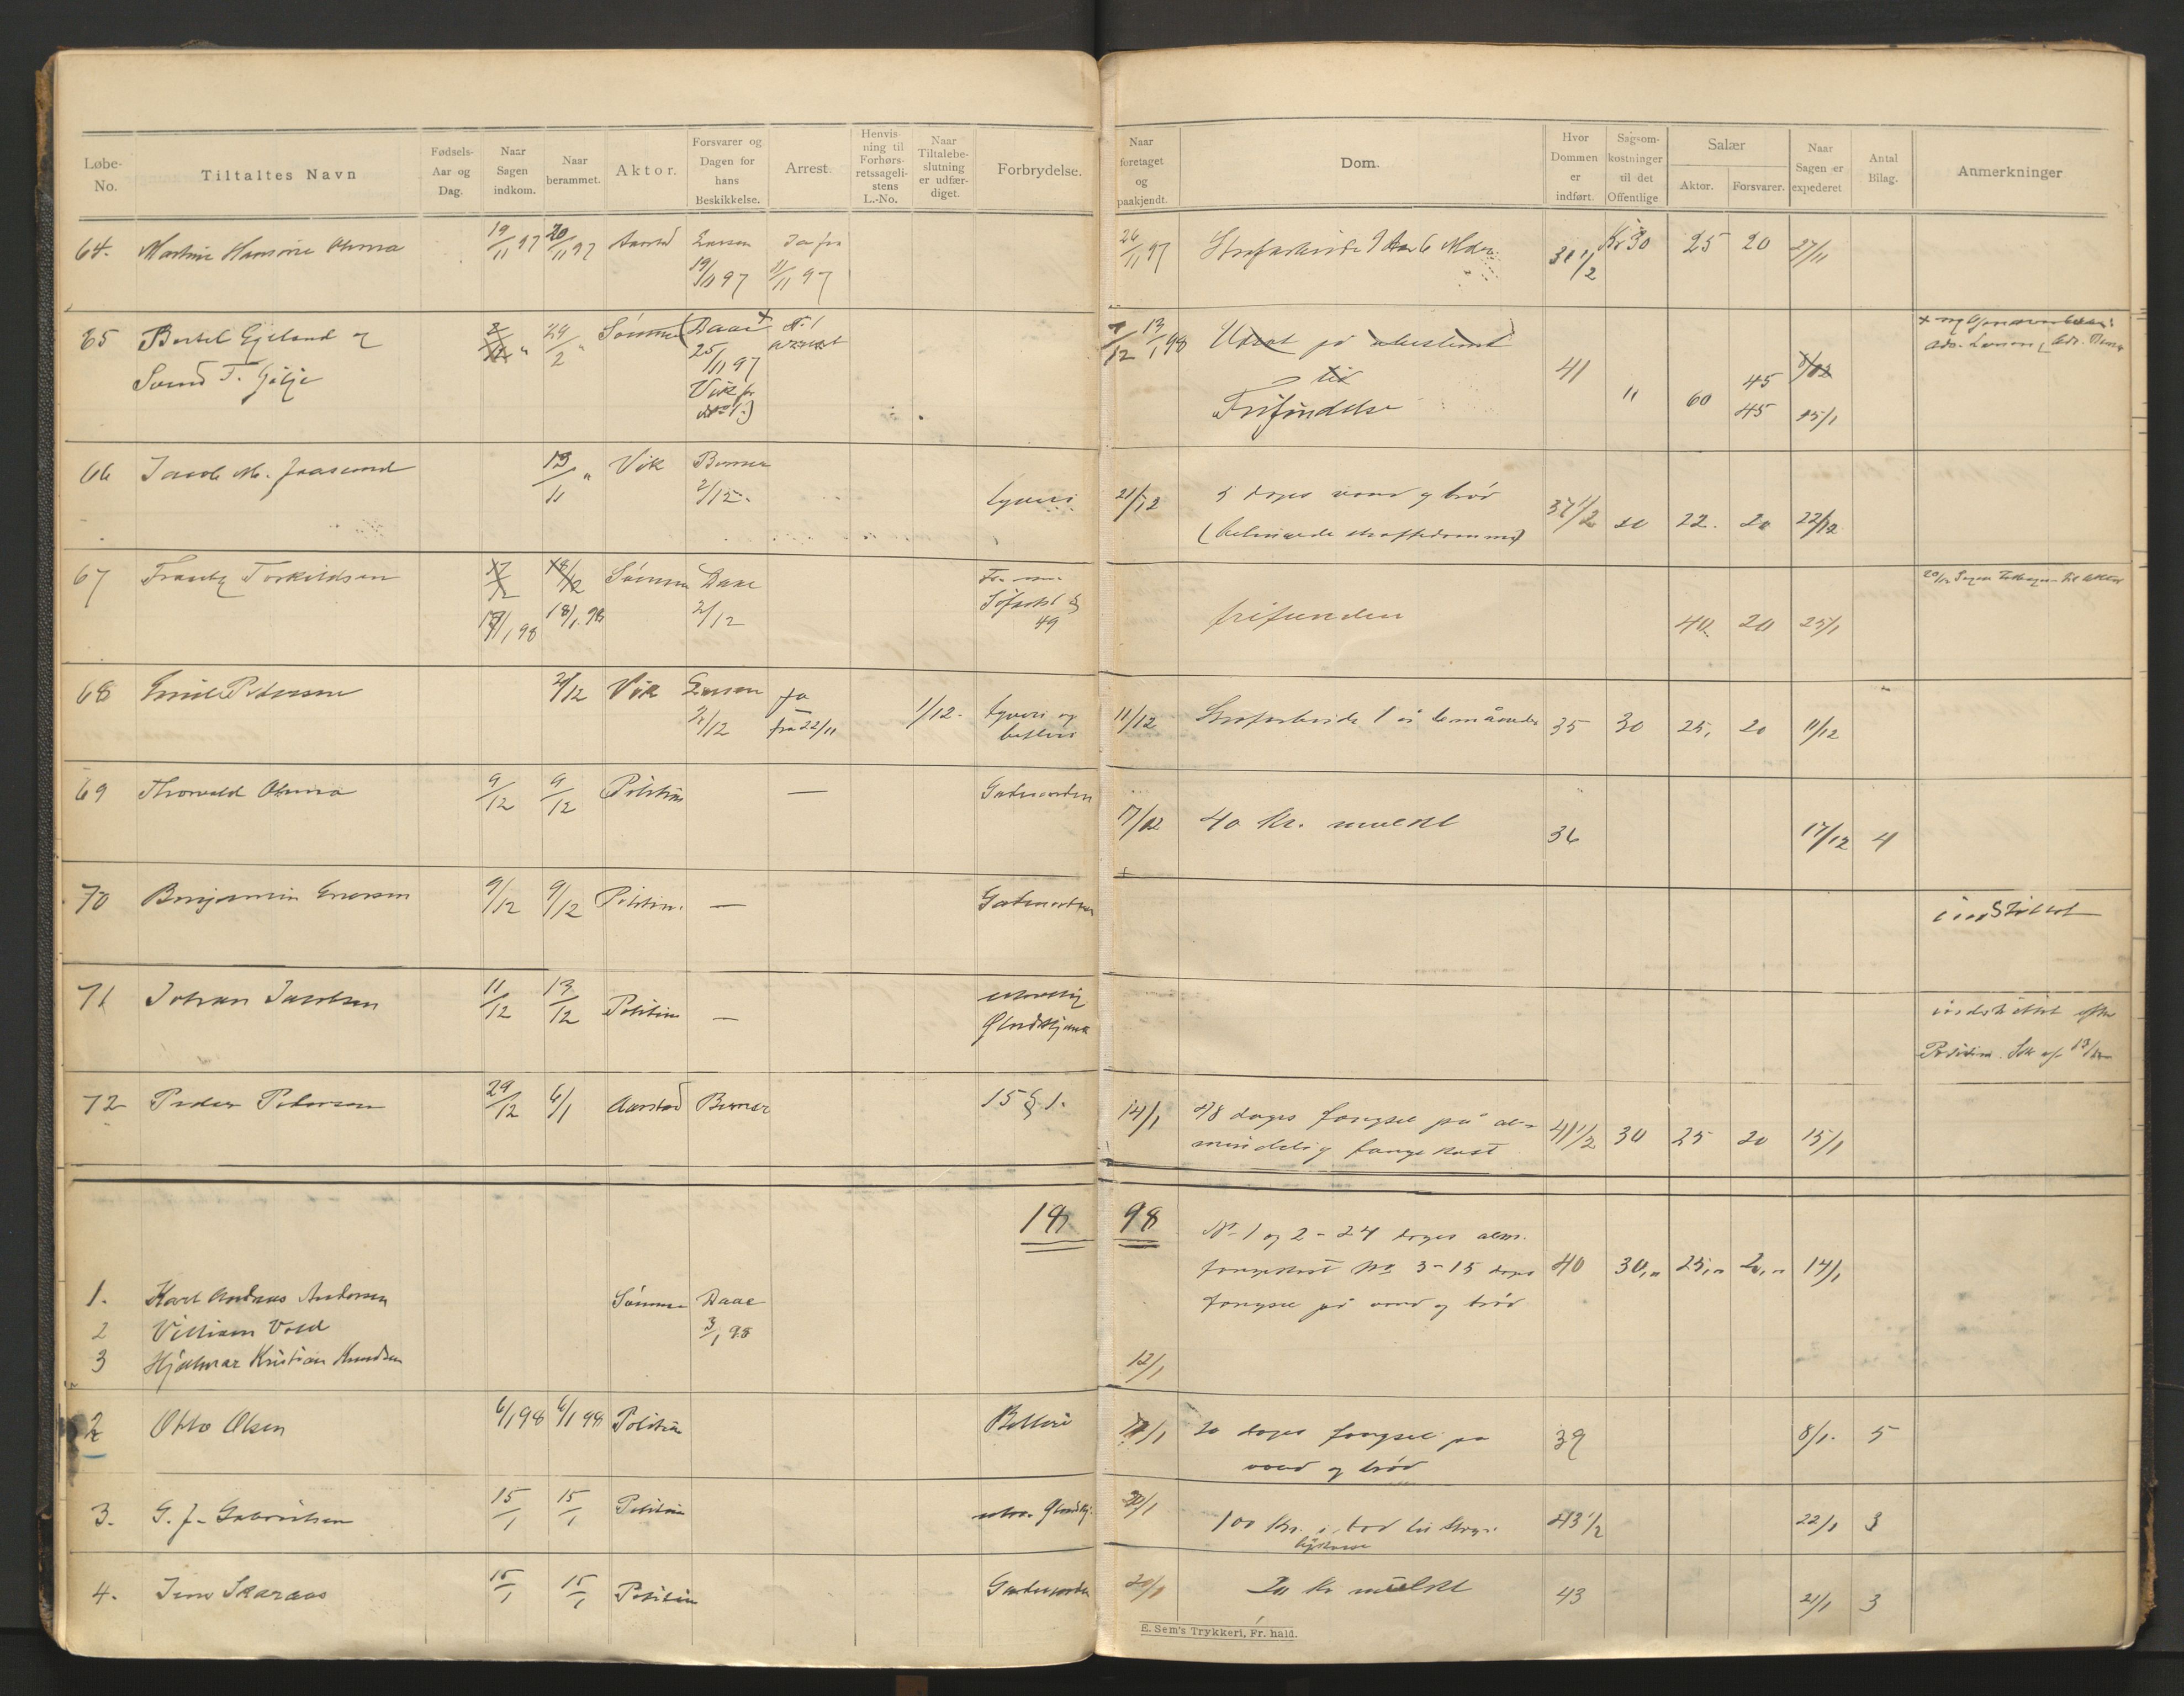 Løbe-No.
Tiltaltes Navn
Fødsels-Aar og Dag.
Naar Sagen indkom.
Naar berammet.
Aktor.
Forsvarer og Dagen for hans Beskikkelse.
Arrest.
Henvisning til Forhørsretssagelistens L.-No.
Naar Tiltalebeslutning er udfærdiget.
Forbrydelse.
Naar foretaget og paakjendt.
Dom.
Hvor Dommen er indført.
Sagsomkostninger til det Offentlige
Salær
Aktor.
Forsvarer.
Naar Sagen er expederet
Antal Bilag.
Anmerkninger
64. 19/11 97 20/11 97 Aarstad Larsen 19/11 97 Ja fra 11/11 97
26/11 97 Strafarbeide 1 Aar 6 Mdr. Kr 30 25 20 27/11
65 Bertel Egeland og
Svend T. Gilje
24/2 Sømme (Daae + 25/11 97 Vik for No 1.) No 1 arrest
13/1 98 Udsat på ubestemt tid
Frifindelse 41 " 60 45 45 15/1
66 Jacob M. 13/11 " Vik 2/12. tyveri
21/12 5 dages vand og brød
(betingede straffedomme) 37 1/2 20 22. 20 22/12
67 Frantz Torkildsen 18/1 98 Sømme Daae 2/12 49
frifunden 40. 20 25/1
68 Emil Petersen Vik Larsen 2/12 ja fra 22/11 1/12. tyveri og betleri
11/12 Strafarbeide 1 år 6 måneder 35 30 25, 20 11/12
69 Thorvald 9/12 9/12 Politiet — Gadeuorden
17/12 40 Kr. mulkt 36 17/12 4
70 Benjamin 9/12 9/12 Politiet. — Gadeuorden
indstillet
71 Johan Jacobsen 11/12 13/12 Politiet —
indstillet efter
13/12
72 Peder Petersen 29/12 6/1 Aarstad 15 § 1.
14/1 48 dages fængsel på al-
mindelig fangekost 41 1/2 30 25 20 15/1
18 98
1. Karl Andreas Andersen Sømme Daae 3/1 98
2 Villiam Vold
3 Hjalmar Kristian Knudsen
12/1
No 1 og 2 - 24 dages alm.
fangekost No 3 - 15 dages
fængsel på vand og brød 40 30,„ 25,„ 20,„ 14/1
2 Otto Olsen 6/1 98 6/1 98 Politiet Betleri
20 dages fængsel på
vand og brød 39 8/1. 5
3. G. J. Gabrielsen 15/1 15/1 Politiet
20/1 100 Kr. i bod til 43 1/2 22/1 3
4. Jens Skaraas 15/1 15/1 Politiet Gadeuorden
20/1 20 Kr mulkt 43 21/1 3
E. Sem's Trykkeri, Fr. hald.